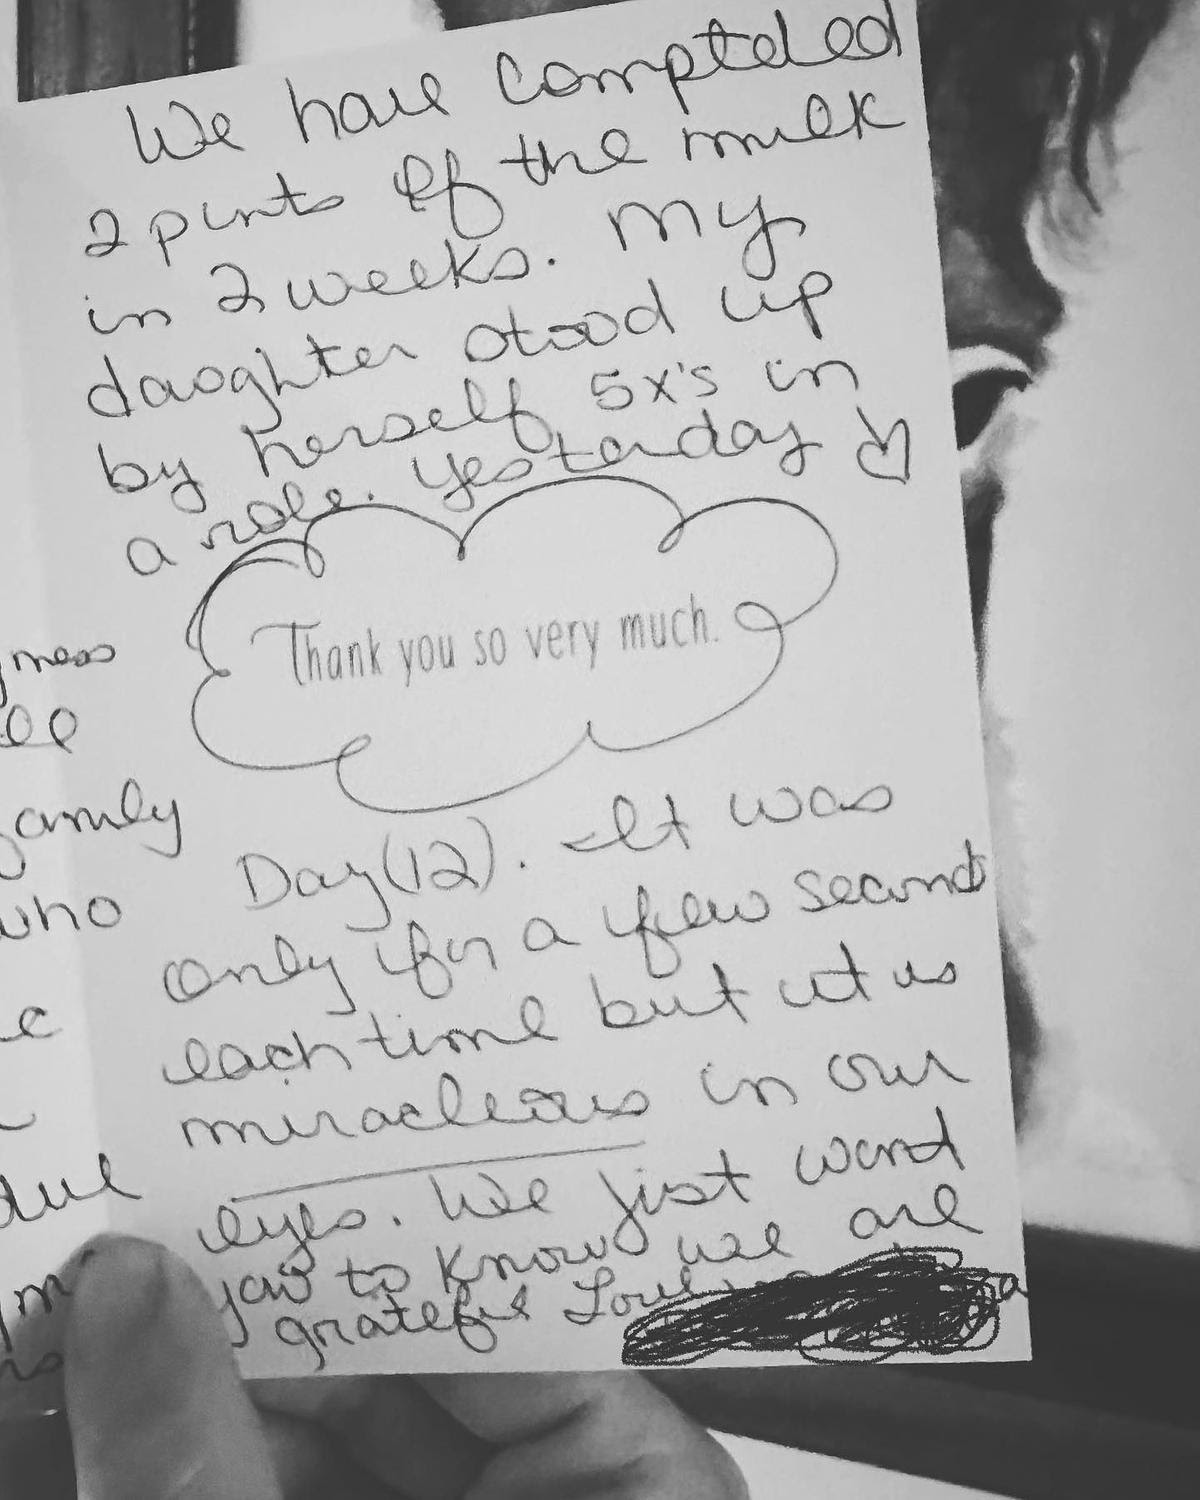 We have compteled
2 pints of the milk
in 2 weeks. My
daughter stood up
by herself 5x's in
a role. Yesterday
Thank you so very much.
Day (12). It was
only for a few seconds
each time but it is
miracleous in our
eyes. We just want
you to know we are
grateful Love
ness
family
who